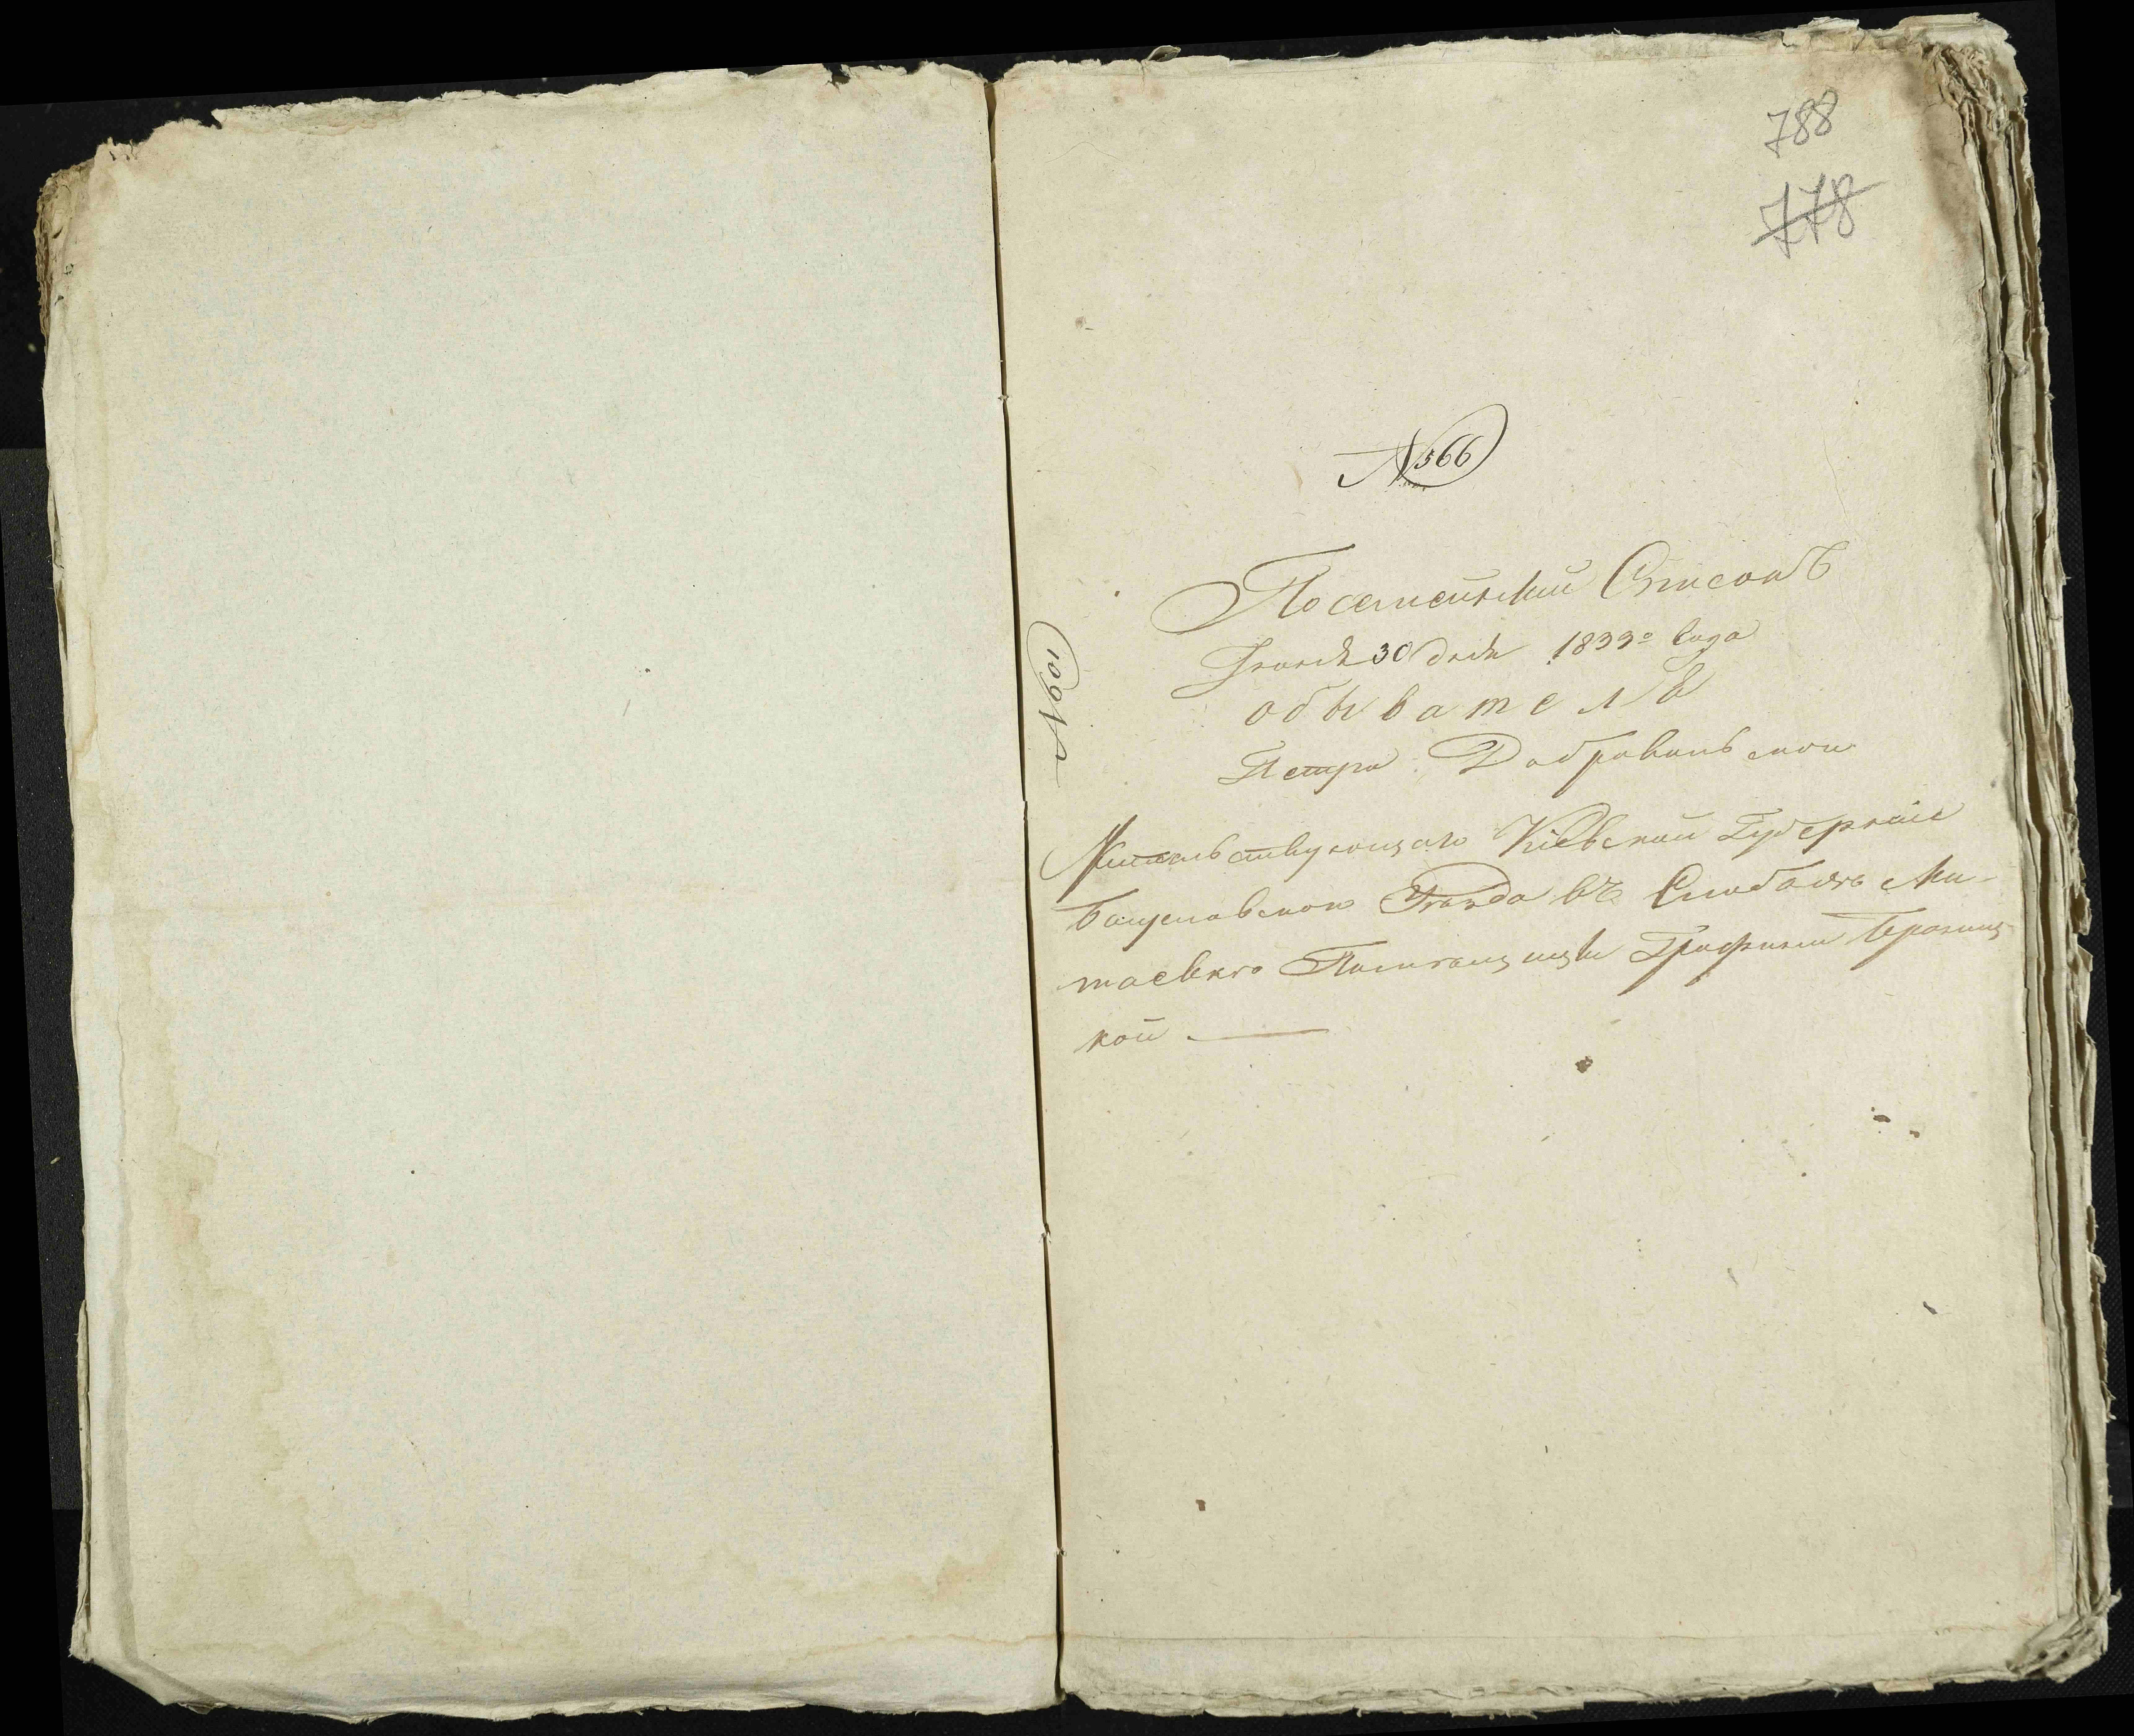 788
778
№ 566
№ 601
Посемейный Списокъ
Іюня 30 дня 1833го Года
обывателя
Петра Добровольского
Жительствующаго Кіевской Губерніи
Богуславского Уезда въ Слободке Ми-
таевке Помещицы Графини Браниц
кой